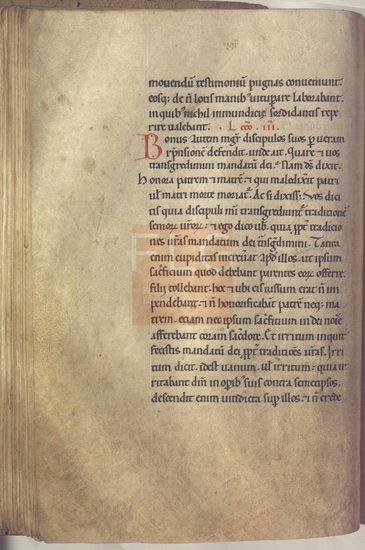 mouendū testimoniū pugnas conueniunt.
eosq; de ñ lotis manib' uitupare laborabant.
in quib' nichil inmundicie sordidantis repe
rire ualebant. Lcćo. iii.
Bonus autem mgr̄ discipulos suos p ueram
rp̄nsionē defendit. unde ait. Quare ⁊ uos
transgredimini mandatū dei. Nam ds̄ dixit.
honora patrem ⁊ matrē. ⁊ qui maledixit patri
ul' matri morte moriat̄. Ac si dixiss;. Vos dici
tis quia discipuli mī transgrediunt̄ traditionē
senioꝝ ⁊ ego dico uob. quia ꝓpt̄ traditio
nes ur̄as mandatum dei Tanta
enim cupiditas ap̄d illos. ut ipsum
sac̄ficium quod debebant parentes eoꝝ offerre.
filii tollebant. hoc ⁊ ubi eis iussum erat ñ im
pendebant. ⁊ ñ honorificabant patrē neq; ma
trem. etiam nec ipsum sac̄ficium in dei noīe
afferebant coram sac̄dote. Et irritum inquit
fecistis mandatū dei ꝓpt̄ traditiōes ur̄as. Irri
tum dicit. idest uanum. ul' irritum. quia ir
ritabant dm̄ in opib' suis contra semetipsos.
descendit enim uindicta sup illos. ⁊ ñ crede